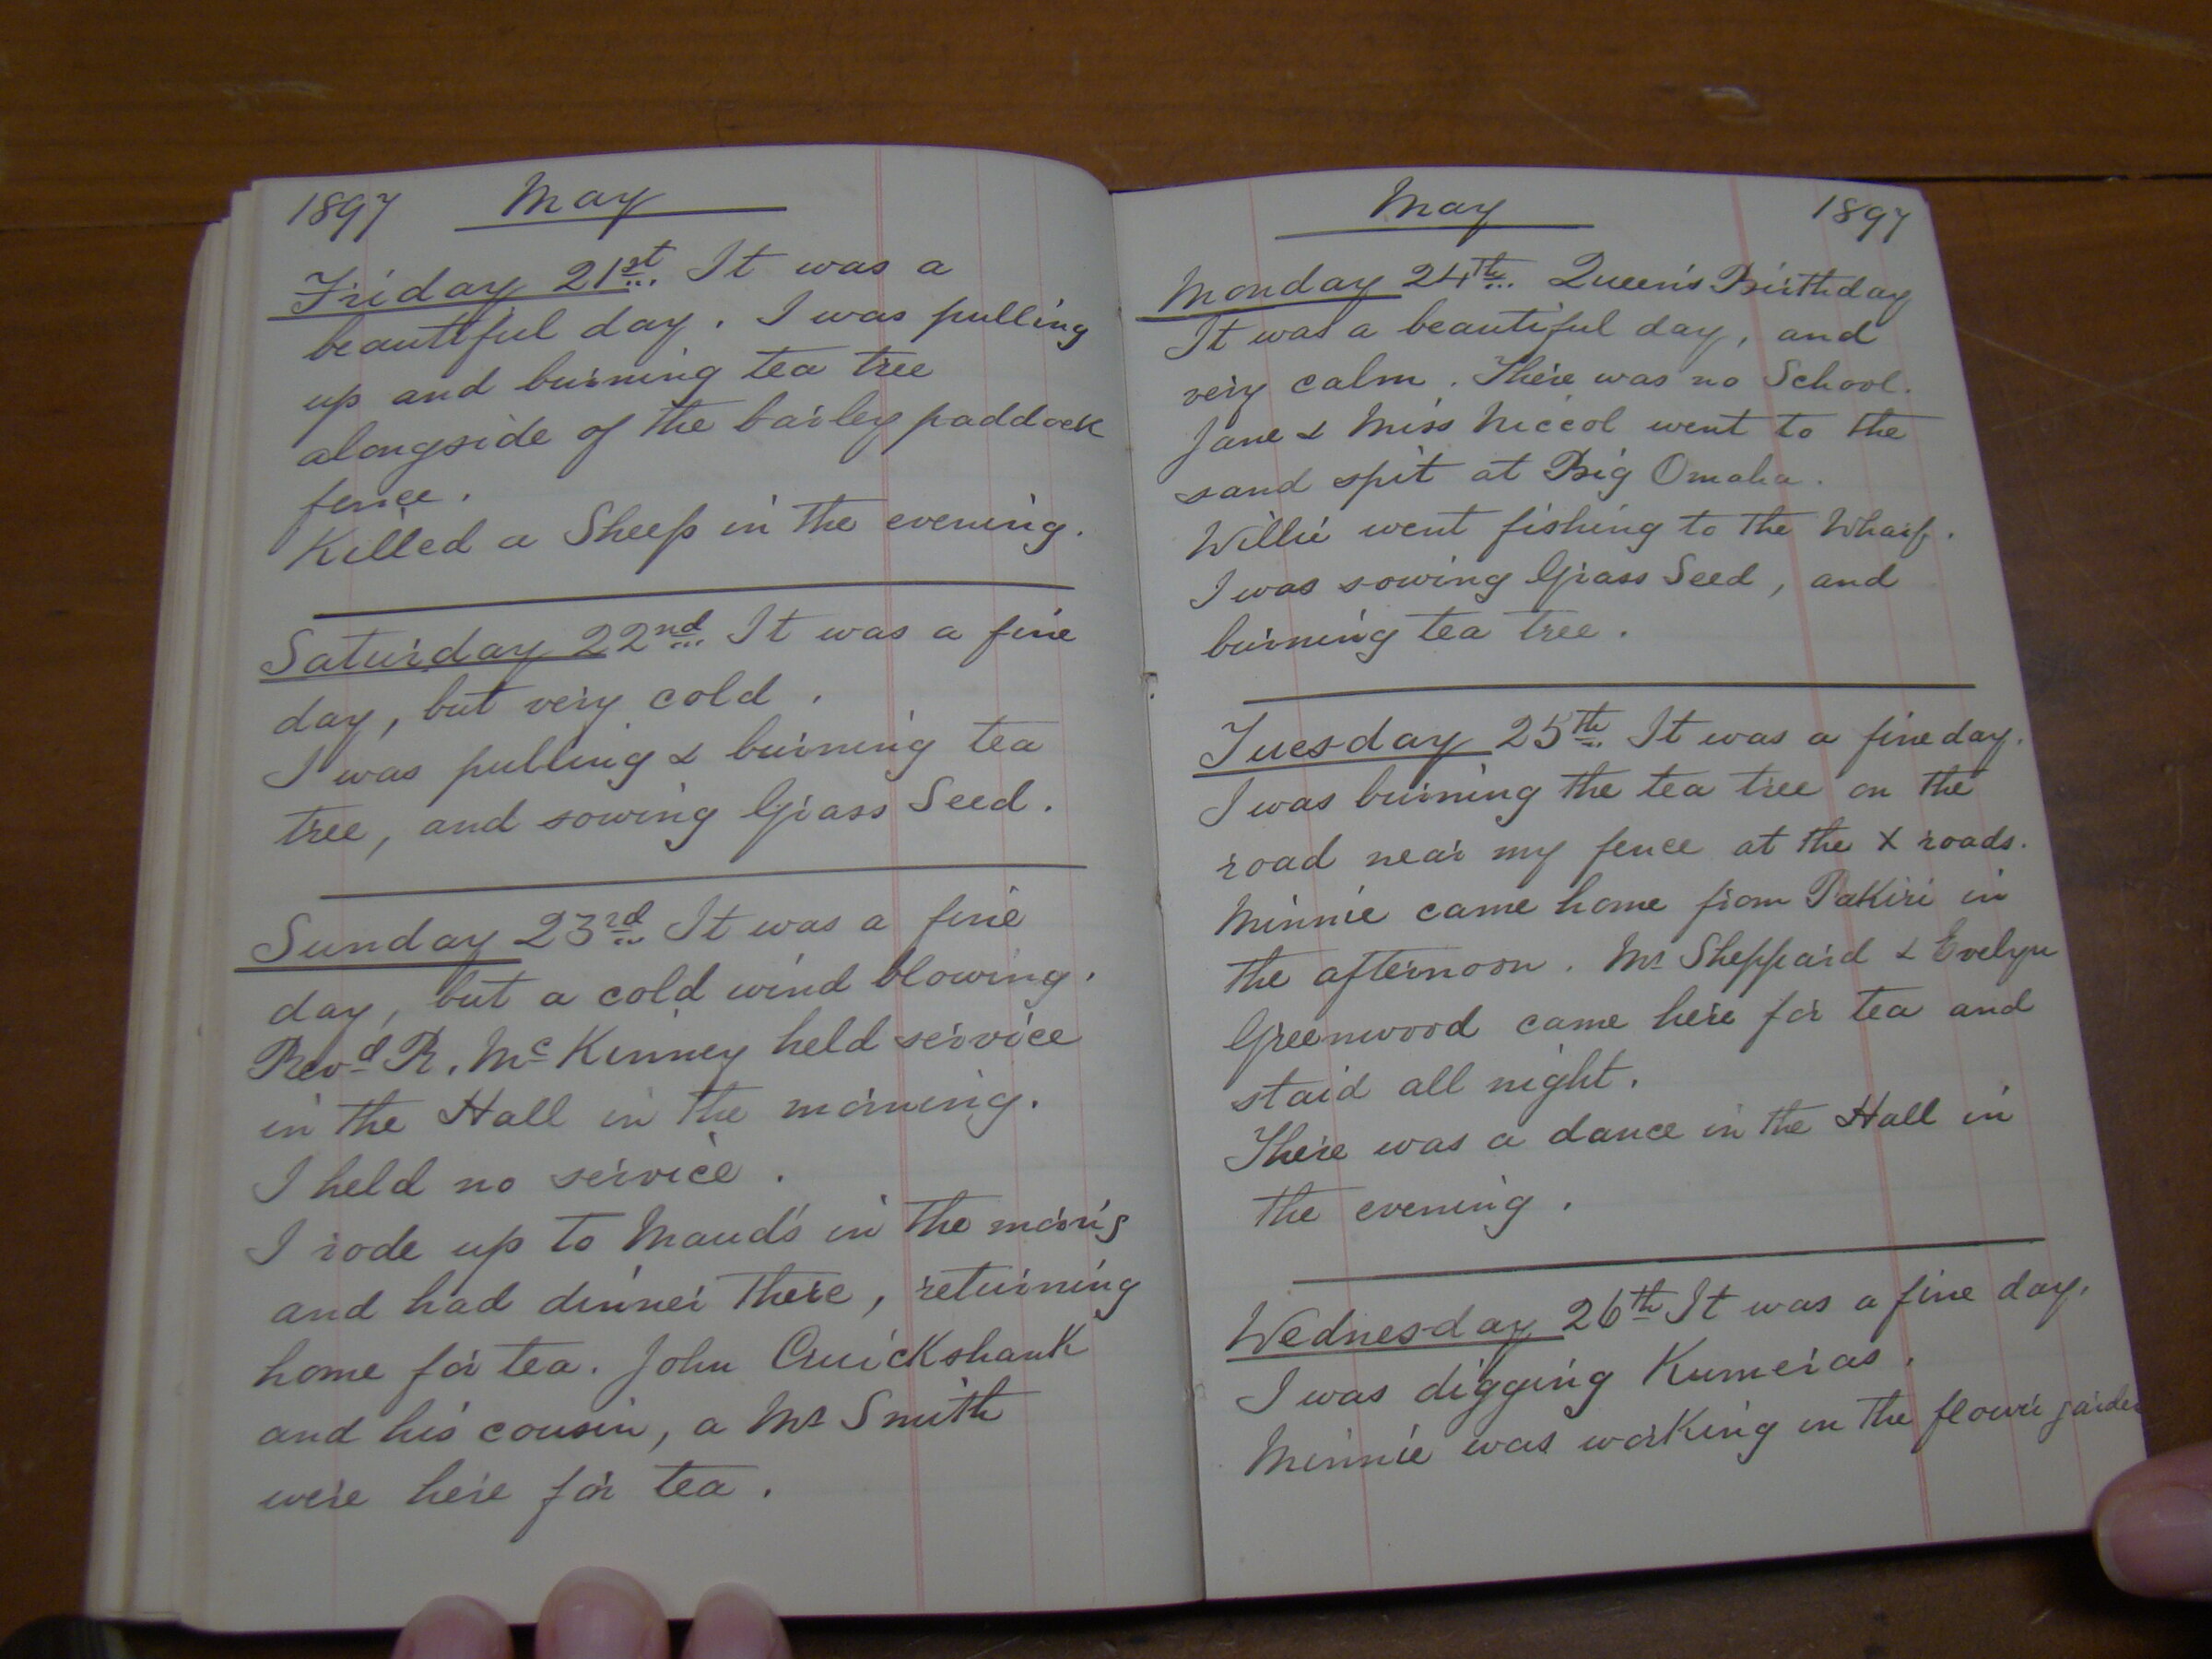 1897 May
Friday 21st. It was a
beautiful day. I was pulling
up and burning tea tree
alongside of the barley paddock
fence.
Killed a Sheep in the evening.
Saturday 22nd. It was a fine
day, but very cold.
I was pulling & burning tea
tree, and sowing Grass Seed.
Sunday 23rd. It was a fine
day, but a cold wind blowing.
Revd R. McKinney held service
in the Hall in the morning.
I held no service.
I rode up to Maud's in the morn'g
and had dinner there, returning
home for tea. John Cruickshank
and his cousin, a Mr Smith
were here for tea.
May 1897
Monday 24th. Queen's Birthday
It was a beautiful day, and
very calm. There was no School.
Jane & Miss Niccol went to the
sand spit at Big Omaha.
Willie went fishing to the Wharf.
I was sowing Grass Seed, and
burning tea tree.
Tuesday 25th. It was a fine day.
I was burning the tea tree on the
road near my fence at the X roads.
Minnie came home from Pakiri in
the afternoon. Mr Sheppard & Evelyn
Greenwood came here for tea and
staid all night.
There was a dance in the Hall in
the evening.
Wednesday 26th It was a fine day.
I was digging Kumeras.
Minnie was working in the flower garden